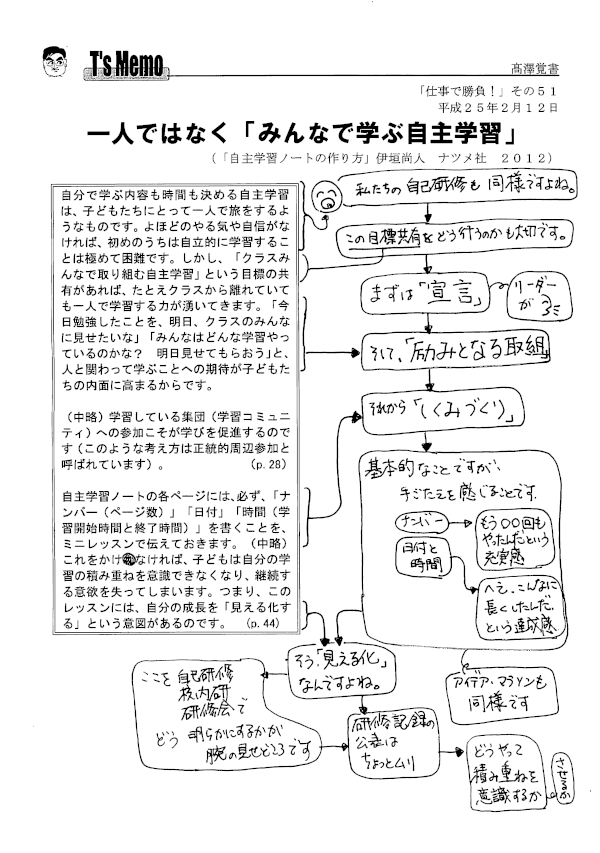 T's Memo
髙澤覚書
「仕事で勝負！」その５１
平成２５年２月１２日
一人ではなく「みんなで学ぶ自主学習」
（「自主学習ノートの作り方」伊垣尚人　ナツメ社　２０１２）
自分で学ぶ内容も時間も決める自主学習
は、子どもたちにとって一人で旅をするよ
うなものです。よほどのやる気や自信がな
ければ、初めのうちは自立的に学習するこ
とは極めて困難です。しかし、「クラスみ
んなで取り組む自主学習」という目標の共
有があれば、たとえクラスから離れていて
も一人で学習する力が湧いてきます。「今
日勉強したことを、明日、クラスのみんな
に見せたいな」「みんなはどんな学習やっ
ているのかな？　明日見せてもらおう」と、
人と関わって学ぶことへの期待が子どもた
ちの内面に高まるからです。
（中略）学習している集団（学習コミュニ
ティ）への参加こそが学びを促進するので
す（このような考え方は正統的周辺参加と
呼ばれています）。　（p. 28）
自主学習ノートの各ページには、必ず、「ナ
ンバー（ページ数）」「日付」「時間（学
習開始時間と終了時間）」を書くことを、
ミニレッスンで伝えておきます。（中略）
これをかけなければ、子どもは自分の学
習の積み重ねを意識できなくなり、継続す
る意欲を失ってしまいます。つまり、この
レッスンには、自分の成長を「見える化す
る」という意図があるのです。　（p. 44）
私たちの自己研修も同様ですよね。
この目標共有をどう行うのかも大切です。
まずは「宣言」
リーダー
が
そして、「励みとなる取組」
それから「しくみづくり」
基本的なことですが、
手ごたえを感じることです。
ナンバー
もう〇〇回も
やったんだという
充実感
日付と
時間
へえ、こんなに
長くしたんだ、
という達成感
アイデア・マラソンも
同様です
そう、「見える化」
なんですよね。
ここを自己研修
校内研
研修会で
どう明らかにするかが
腕の見せどころです
研修記録の
公表は
ちょっとムリ
どうやって
積み重ねを
意識するか
させるか